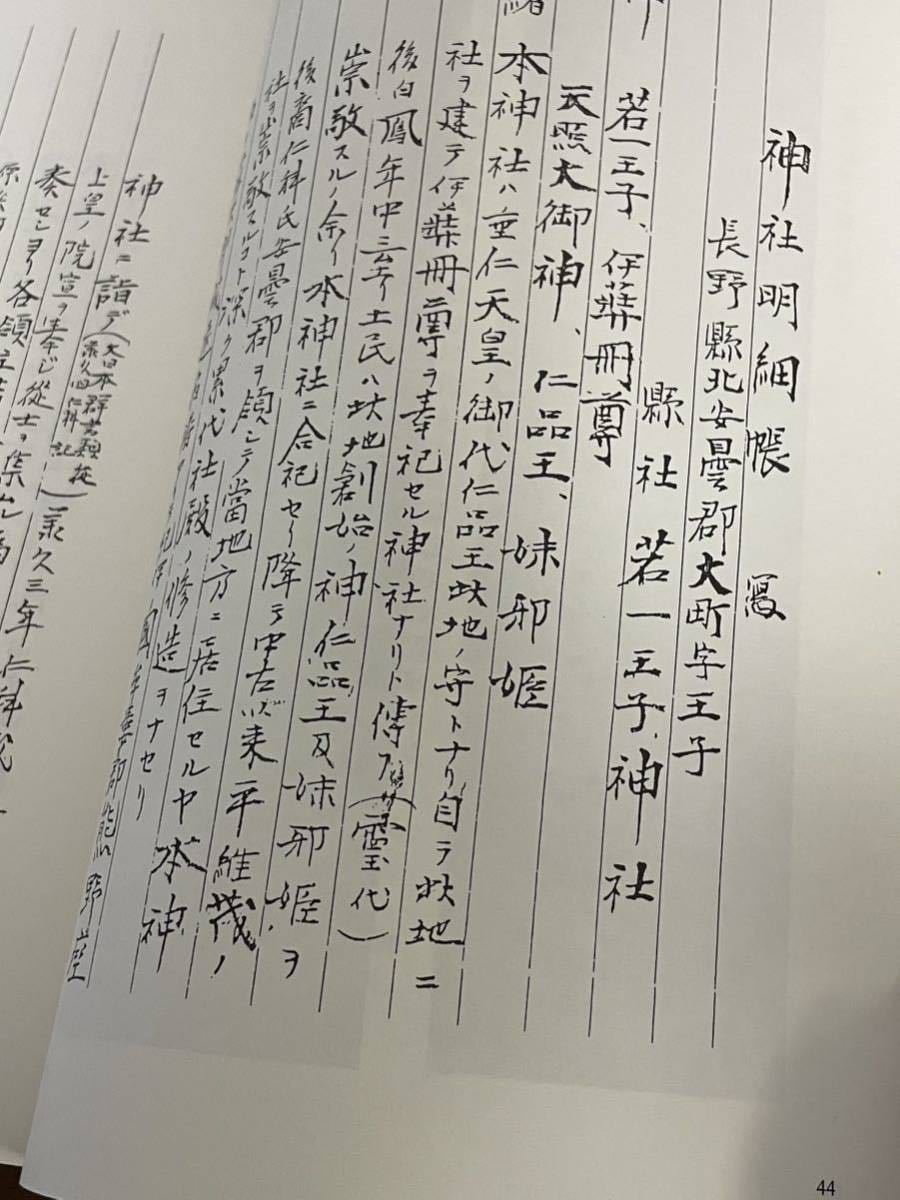 神社明細帳 寫
長野縣北安曇郡大町字王子
縣社 若一王子神社
若一王子、伊弉冊尊
天照大御神、仁品王、妹耶姫
本神社ハ垂仁天皇ノ御代仁品王此地ノ守トナリ自ラ此地ニ
社ヲ建テ伊弉冊尊ヲ奉祀セル神社ナリト傳フ(靈代)
後白鳳年中ニ至リ土民ハ此地創始ノ神仁品王及妹耶姫ヲ
崇敬スルノ余リ本神社ニ合祀セリ降テ中古以来平維茂ノ
後裔仁科氏安曇郡ヲ領シテ當地方ニ居住セルヤ本神
社ヲ崇敬スルコト深ク累代社殿ノ修造ヲナセリ
郡熊野座
神社ニ詣デ(大日本群書類従承久四仁科記)承久三年仁科盛
上皇ノ院宣ヲ奉ジ從士ヲ集ムル
奏セシヨリ各領